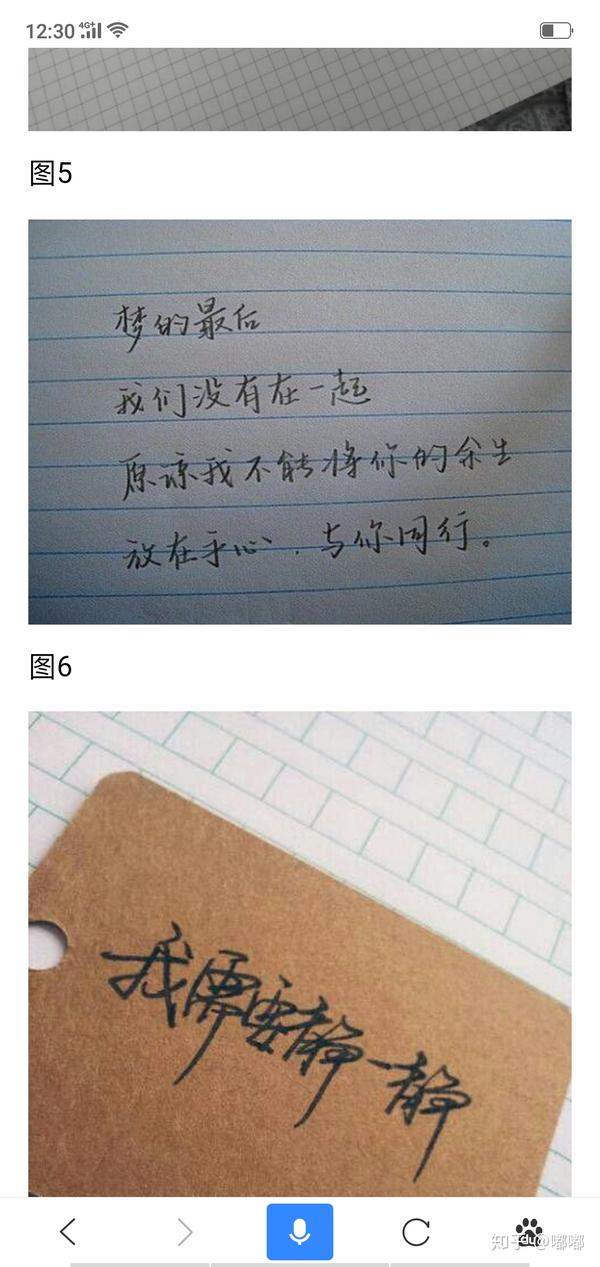 12:30 4G+
图5
梦的最后
我们没有在一起
原谅我不能将你的余生
放在手心、与你同行。
图6
我需要静一静
知乎 @嘟嘟